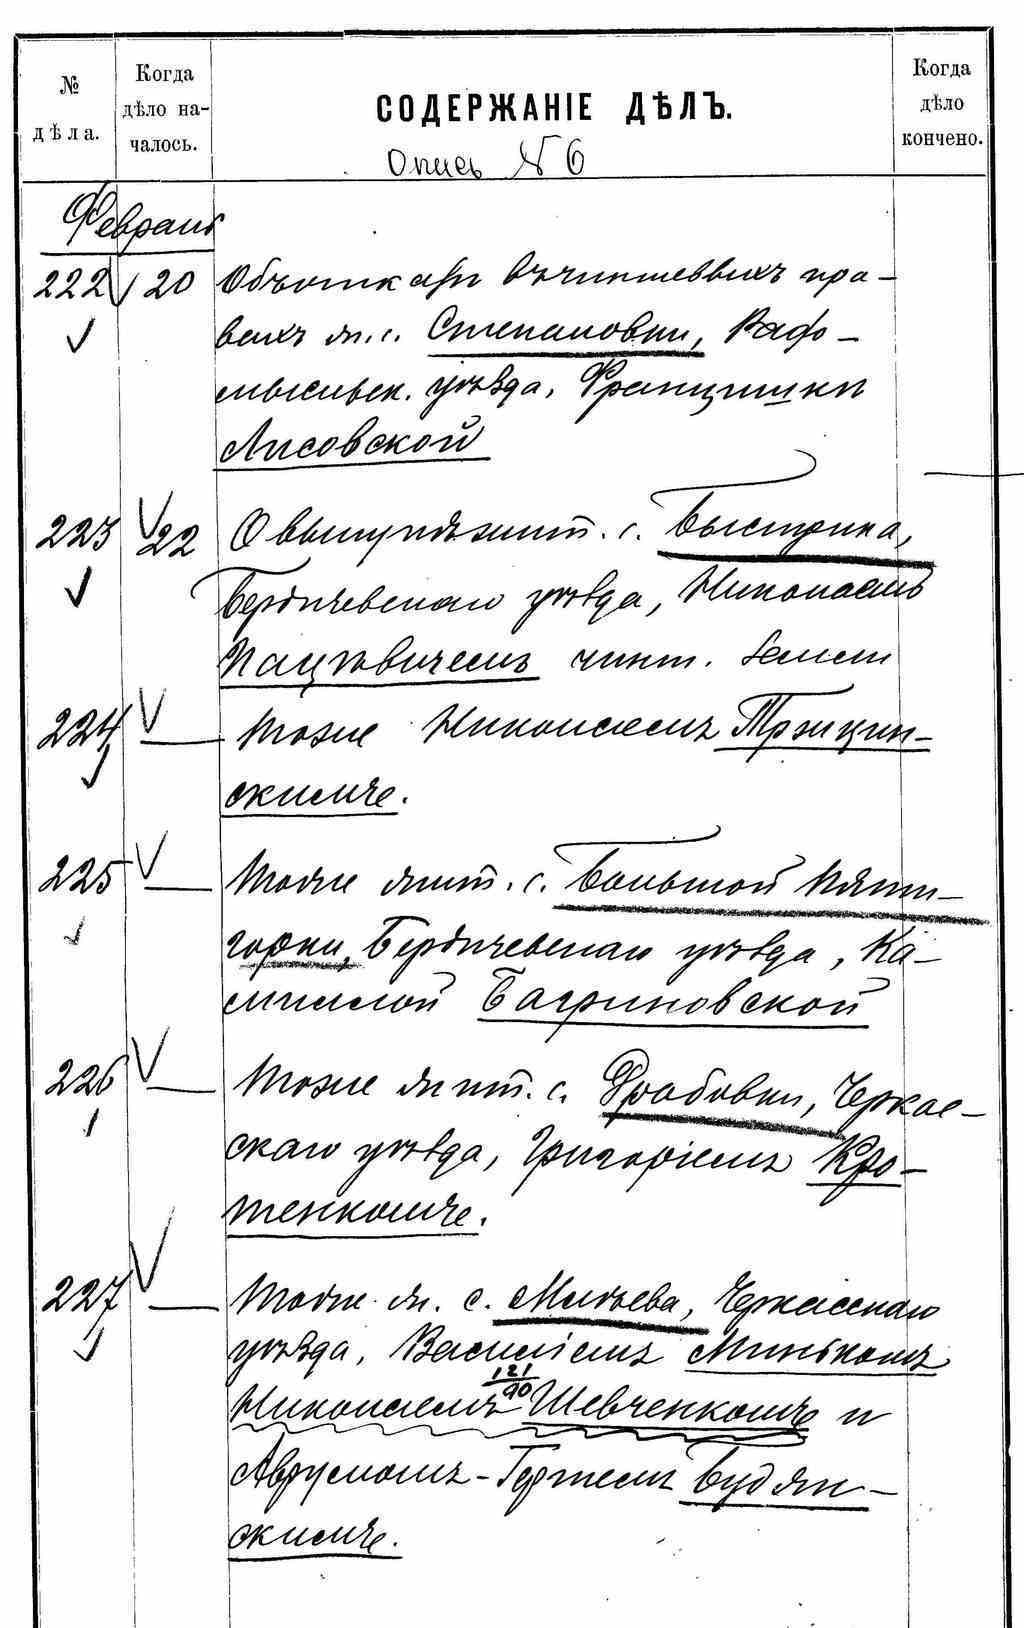 № дѣла.
Когда дѣло на-чалось.
СОДЕРЖАНІЕ ДѢЛЪ.
Когда дѣло кончено.
Опись № 6
Февраль
222 20 Объ откар вѣчиншеввыхъ пра-
вахъ ж. с. Степановки, Радо-
мысльск. уѣзда, Францишки
Лисовской
223 22 О выкупѣ жит. с. Быстрика,
Бердичевскаго уѣзда, Николаемъ
Пацкевичемъ чинш. земли
224 — Тоже Николаемъ Тржцин-
скимъ.
225 — Тоже жит. с. Большой Пяти-
горки, Бердичевскаго уѣзда, Ка-
милліой Багриновской
226 — Тоже жит. с. Драбовки, Черкас-
скаго уѣзда, Григоріемъ Кро-
тенкомъ.
227 — Тоже ж. с. Млѣева, Черкасскаго
уѣзда, Василіемъ Минькомъ
121
90
Николаемъ Шевченкомъ и
Аврумомъ-Гершемъ Будян-
скимъ.